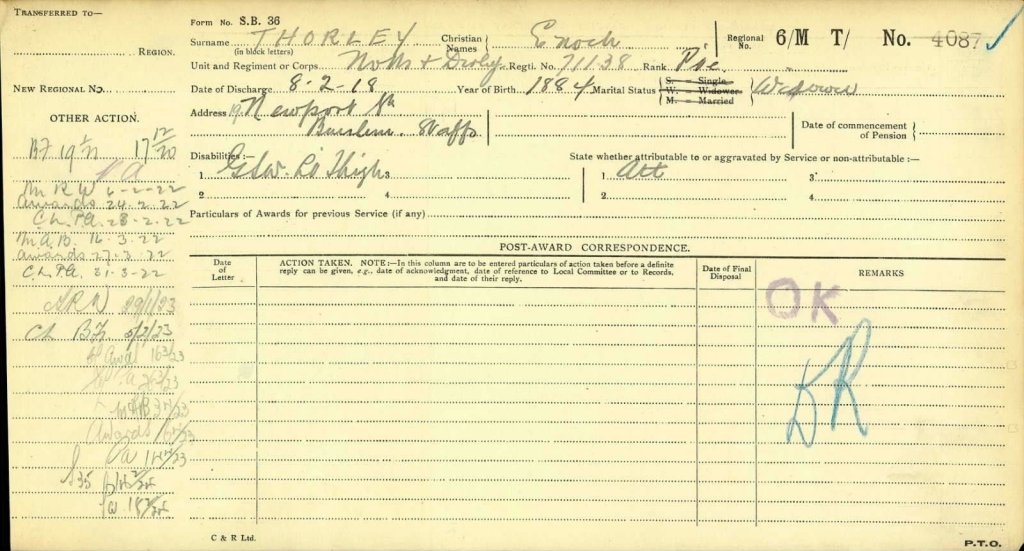 TRANSFERRED TO—
REGION.
NEW REGIONAL NO.
OTHER ACTION.
BF 19 21 17 12/20
M R W 6-2-22
Awards 24.2.22
Ch. P.A. 28-2.22
M.A.B. 16.3.22
Awards 27.3.22
Ch P.A. 31-3-22
29/1/23
Ch BF 5/2/23
Awards
S35
Form No. S.B. 36
Surname (in block letters) THORLEY Christian Names Enoch Regional No. 6/M T/ No. 4087
Unit and Regiment or Corps Notts & Derby Regtl. No. 71138 Rank Pte
Date of Discharge 8-2-18 Year of Birth 1884 Marital Status S. = Single W. = Widower M. = Married Widower
Address 19 Newport St
Burslem. Staffs
Date of commencement of Pension
Disabilities:— State whether attributable to or aggravated by Service or non-attributable:—
1 GSW. Lt Thigh 3 1 Att 3
2 4 2 4
Particulars of Awards for previous Service (if any)
POST-AWARD CORRESPONDENCE.
Date of Letter
ACTION TAKEN. NOTE:—In this column are to be entered particulars of action taken before a definite
reply can be given, e.g., date of acknowledgment, date of reference to Local Committee or to Records,
and date of their reply.
Date of Final Disposal
REMARKS
OK
DR
C & R Ltd.
P.T.O.